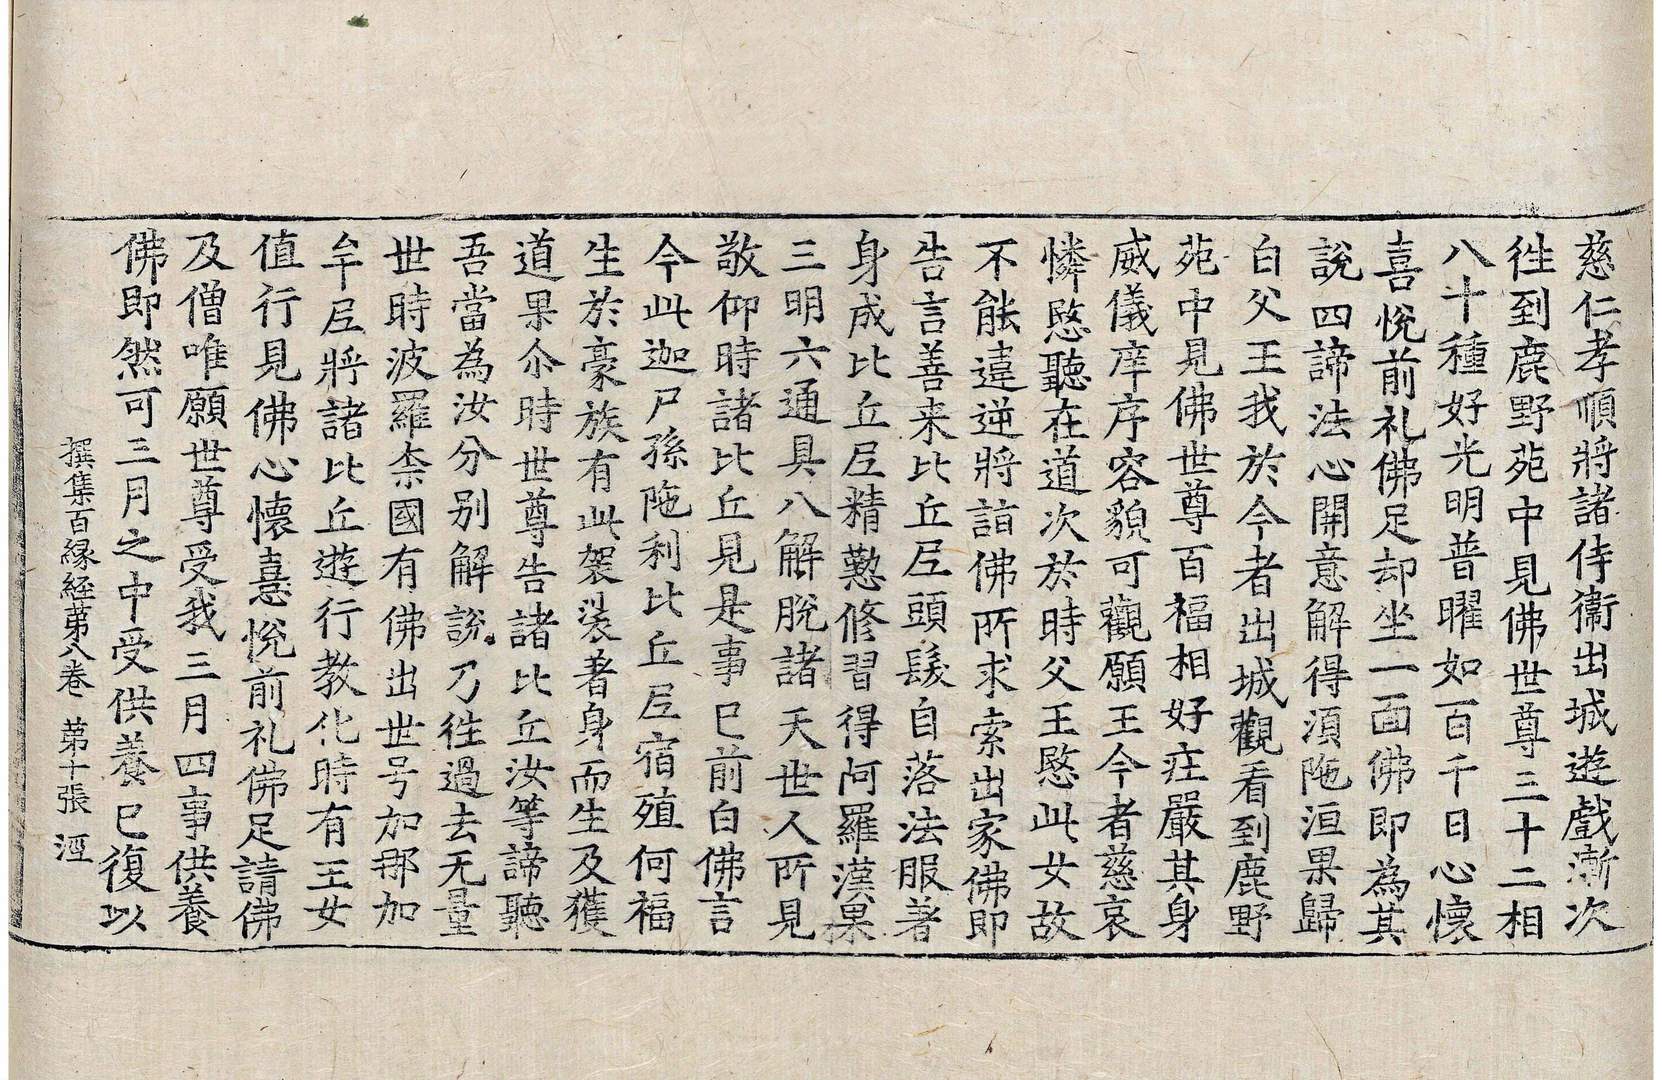 慈仁孝順將諸侍衞出城遊戲漸次
徃到鹿野苑中見佛世尊三十二相
八十種好光明普曜如百千日心懷
喜悅前礼佛足却坐一面佛即為其
說四諦法心開意解得須陁洹果歸
白父王我於今者出城觀看到鹿野
苑中見佛世尊百福相好庄嚴其身
威儀庠序容貌可觀願王今者慈哀
憐愍聽在道次於時父王愍此女故
不能違逆將詣佛所求索出家佛即
告言善来比丘尼頭髮自落法服著
身成比丘尼精懃修習得阿羅漢果
三明六通具八解脫諸天世人所見
敬仰時諸比丘見是事已前白佛言
今此迦尸孫陁利比丘尼宿殖何福
生於豪族有此袈裟著身而生及獲
道果尒時世尊告諸比丘汝等諦聽
吾當為汝分別解說乃徃過去无量
世時波羅柰國有佛出世号加那加
牟尼將諸比丘遊行教化時有王女
值行見佛心懷憙悅前礼佛足請佛
及僧唯願世尊受我三月四事供養
佛即然可三月之中受供養已復以
撰集百縁経苐八卷 苐十張 洍